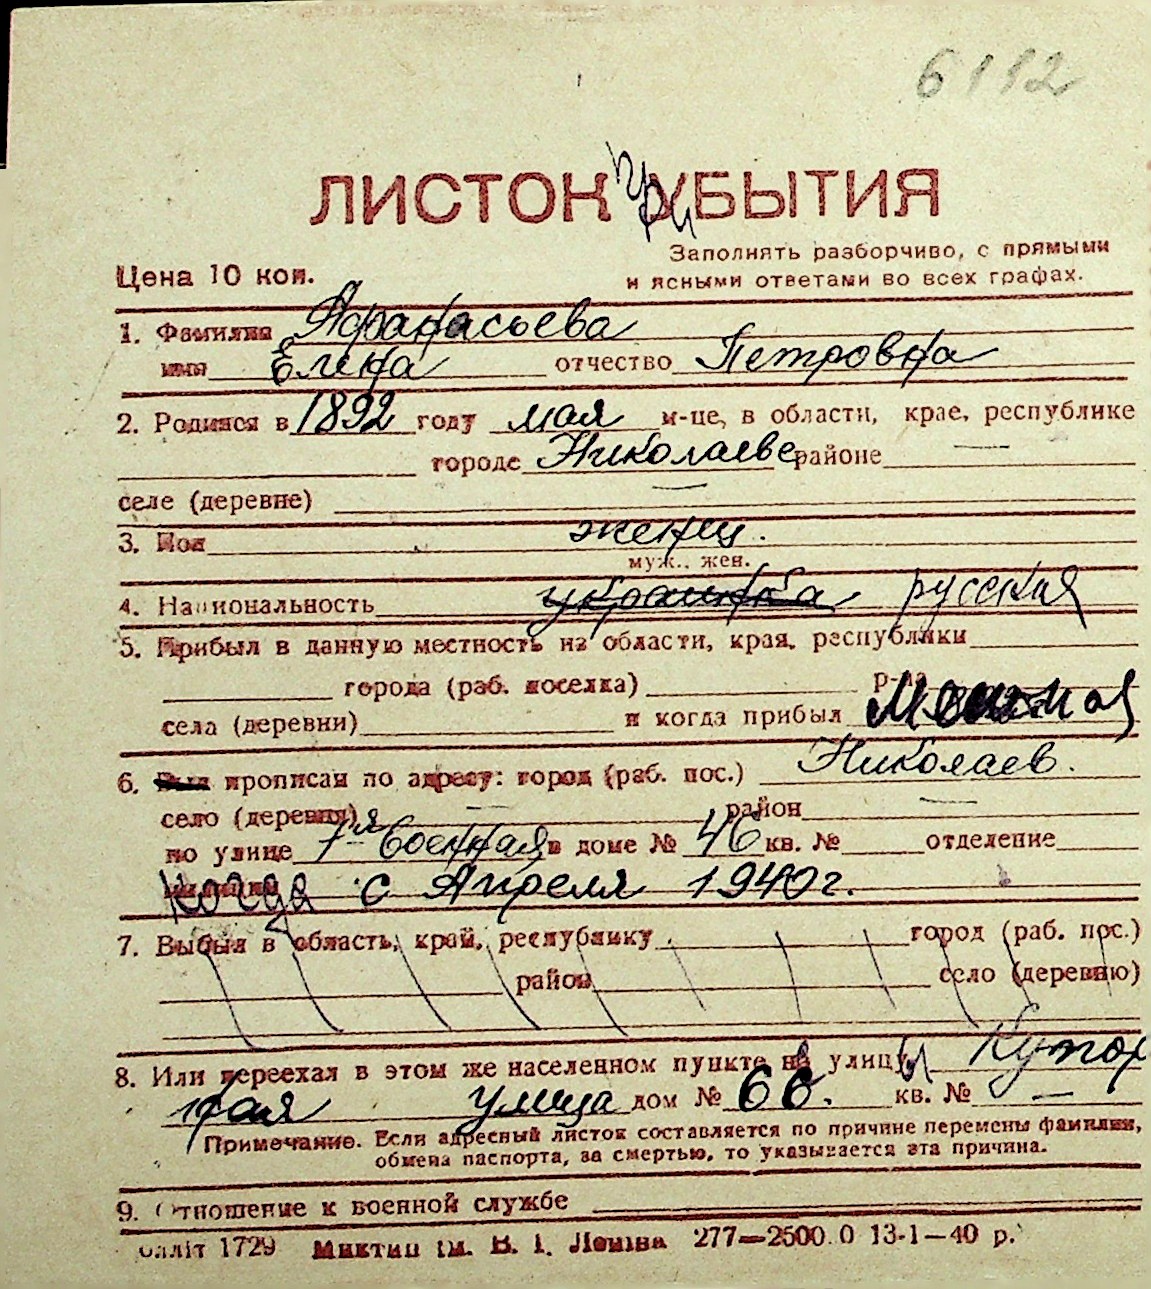 6112
ЛИСТОК ПриБЫТИЯ
Заполнять разборчиво, с прямыми
Цена 10 коп. и ясными ответами во всех графах.
1. Фамилия Афанасьева
имя Елена отчество Петровна
2. Родился в 1892 году мая м-це, в области, крае, республике
городе Николаеве районе —
селе (деревне) —
3. Пол женщ.
муж., жен.
4. Национальность украинка русская
5. Прибыл в данную местность из области, края, республики
города (раб. поселка) р-на
села (деревни) и когда прибыл
6. Был прописан по адресу: город (раб. пос.) Николаев.
село (деревня) — район —
по улице 7-я Военная в доме № 46 кв. № отделение
когда с Апреля 1940 г.
7. Выбыл в область, край, республику город (раб. пос.)
район село (деревню)
8. Или переехал в этом же населенном пункте на улицы Кутор
ная улица дом № 66. кв. № —
Примечание. Если адресный листок составляется по причине перемены фамилии,
обмена паспорта, за смертью, то указывается эта причина.
9. Отношение к военной службе
1729 ім. В. І. Леніна 277—2500.0 13-1—40 р.